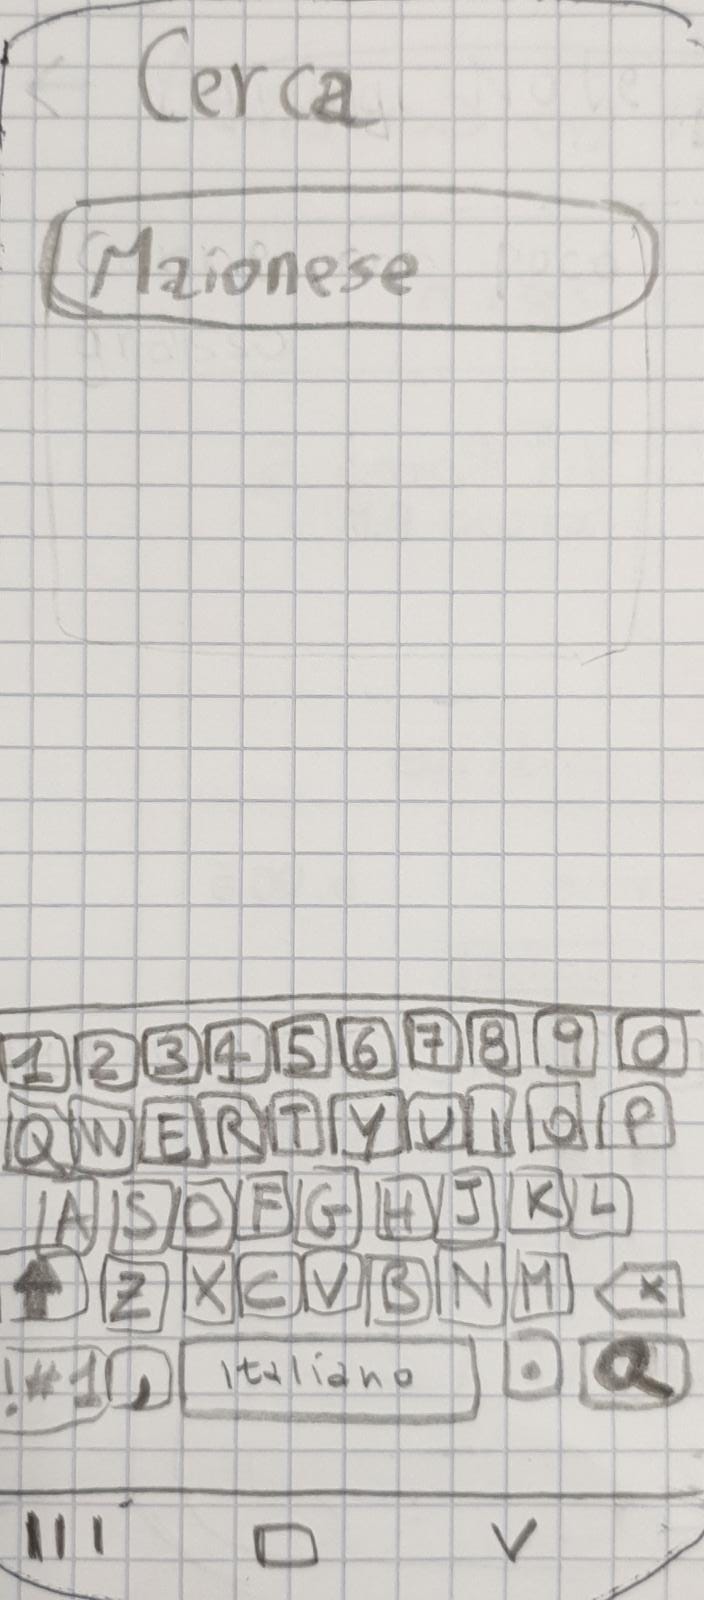 Cerca
Maionese
1 2 3 4 5 6 7 8 9 0
Q W E R T Y U I O P
A S D F G H J K L
Z X C V B N M x
!#1 , Italiano .